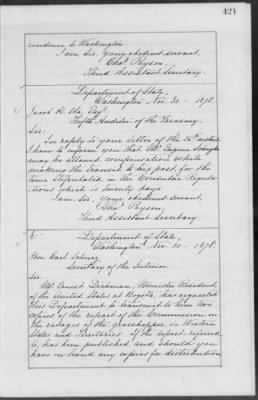 421
residence to Washington.
I am, Sir, your obedient servant,
Chas. Payson,
Third Assistant Secretary.
Department of State,
Washington Nov. 30 - 1878.
Jacob H. Ela, Esq.
Fifth Auditor of the Treasury.
Sir:
In reply to your letter of the 26th instant
I have to inform you that Mr. Eugene
may be allowed compensation while
making the transit to his post, for the
time stipulated in the Consular Regula-
tions which is twenty days.
I am, Sir, your obedient servant,
Chas. Payson,
Third Assistant Secretary.
Department of State,
Washington Nov. 30 - 1878.
Hon. Carl Schurz,
Secretary of the Interior.
Sir:
Mr. Ernest Dichman, Minister Resident,
of the United States at Bogotá, has requested
this Department to transmit to him two
copies of the report of the Commission on
the ravages of the grasshopper in Western
States and Territories. If the report referred
is, has been published and should you
have on hand any copies for distribution